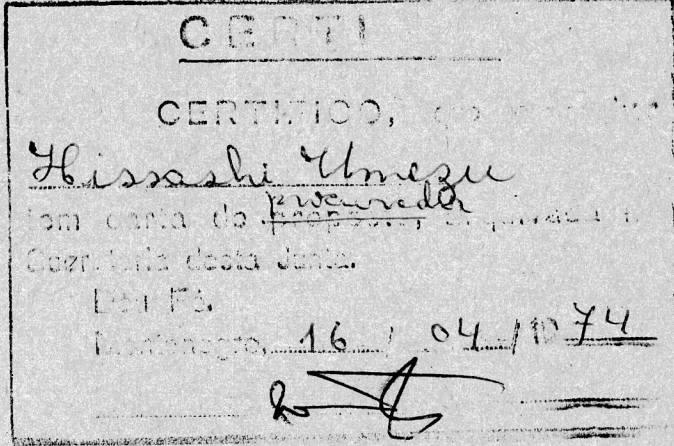 CERTI
CERTIFICO, que
Hissashi Umezu
procurador
tem carta de preposto, arquivada n
Secretaria desta Junta.
Dou Fé.
Montenegro, 16 / 04 / 19 74